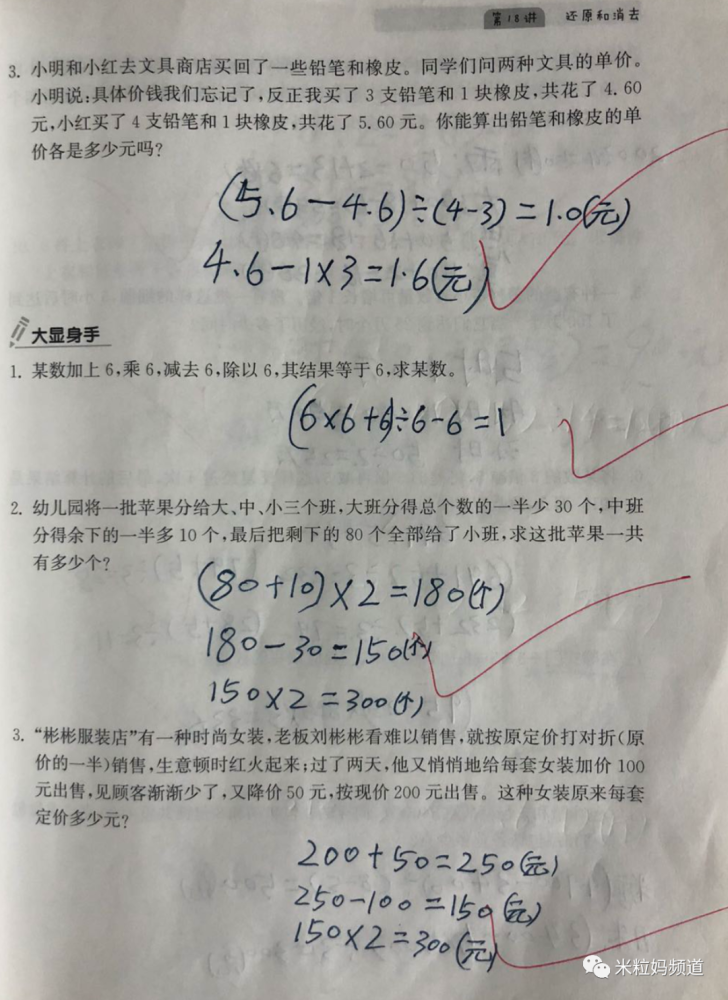 第18讲 还原和消去
3. 小明和小红去文具商店买回了一些铅笔和橡皮。同学们问两种文具的单价。
小明说:具体价钱我们忘记了,反正我买了3支铅笔和1块橡皮,共花了4.60
元,小红买了4支铅笔和1块橡皮,共花了5.60元。你能算出铅笔和橡皮的单
价各是多少元吗?
(5.6-4.6)÷(4-3)=1.0(元)
4.6-1×3=1.6(元)
大显身手
1. 某数加上6,乘6,减去6,除以6,其结果等于6,求某数。
(6×6+6)÷6-6=1
2. 幼儿园将一批苹果分给大、中、小三个班,大班分得总个数的一半少30个,中班
分得余下的一半多10个,最后把剩下的80个全部给了小班,求这批苹果一共
有多少个?
(80+10)×2=180(个)
180-30=150(个)
150×2=300(个)
3. “彬彬服装店”有一种时尚女装,老板刘彬彬看难以销售,就按原定价打对折(原
价的一半)销售,生意顿时红火起来;过了两天,他又悄悄地给每套女装加价100
元出售,见顾客渐渐少了,又降价50元,按现价200元出售。这种女装原来每套
定价多少元?
200+50=250(元)
250-100=150(元)
150×2=300(元)
米粒妈频道